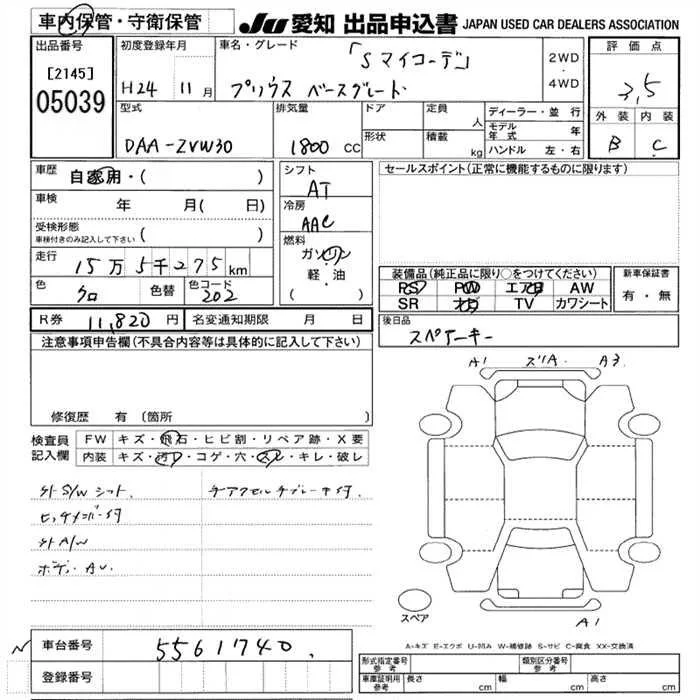 車内保管・守衛保管
JU 愛知 出品申込書 JAPAN USED CAR DEALERS ASSOCIATION
出品番号
[2145]
05039
初度登録年月
H24 11月
車名・グレード
「Sマイコーデ」
プリウス ベースグレード
2WD
・
4WD
評価点
3,5
外装 内装
B C
型式
DAA-ZVW30
排気量
1800 cc
ドア
形状
定員 人
積載 kg
ディーラー・並行
モデル年式 年
ハンドル 左・右
車歴
自家用・( )
車検
年 月( 日)
受検形態
車検付きのみ記入して下さい ( )
走行
15万5千275km
色
クロ
色替
色コード
202
シフト
AT
冷房
AAC
燃料
ガソリン
軽・油
( )
セールスポイント(正常に機能するものに限ります)
装備品(純正品に限り○をつけてください)
PS PW エアB AW
SR ナビ TV カワシート
新車保証書
有・無
R券 11,820円 名変通知期限 月 日
後日品
スペアーキー
注意事項申告欄(不具合内容等は具体的に記入して下さい)
修復歴 有(箇所 )
検査員記入欄
FW キズ・飛石・ヒビ割・リペア跡・X要
内装 キズ・汚レ・コゲ・穴・スレ・キレ・破レ
外S/Wシフト
ヒッチメンバー付
外A/W
ボディAU
A1 ズリA A3
スペア
A1
A-キズ E-エクボ U-凹み W-補修跡 S-サビ C-腐食 XX-交換済
車台番号 5561740
登録番号
形式指定番号 参考
類別区分番号 参考
車庫証明用 参考
長さ cm 幅 cm 高さ cm